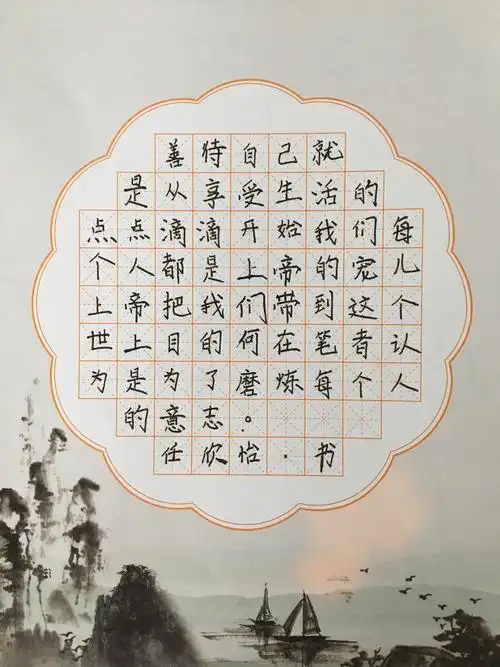 善待自己就
是从享受生活的
点点滴滴开始我们每
个人都是上帝的宠儿
上帝把我们带到这个
世上目的何在笔者认
为是为了磨炼每个人
的意志。
任欣怡·书